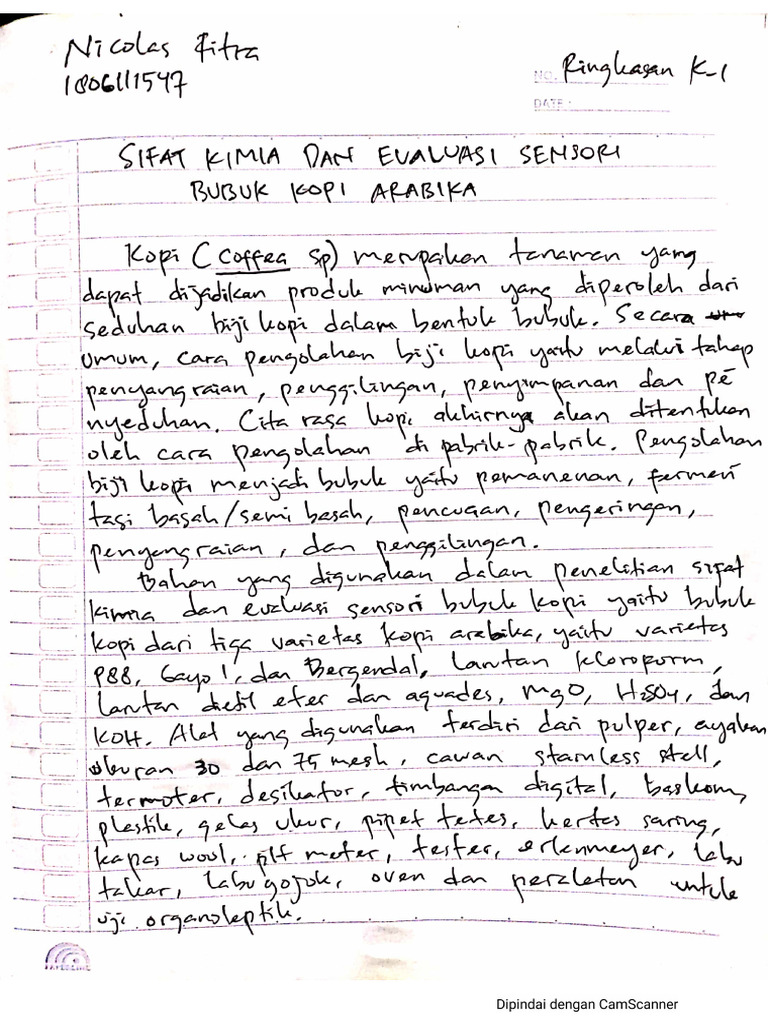 Nicolas Fitra
1806111547
NO. Ringkasan K-1
DATE :
SIFAT KIMIA DAN EVALUASI SENSORI
BUBUK KOPI ARABIKA
Kopi (Coffea sp) merupakan tanaman yang
dapat dijadikan produk minuman yang diperoleh dari
seduhan biji kopi dalam bentuk bubuk. Secara
umum, cara pengolahan biji kopi yaitu melalui tahap
penyangraian, penggilingan, penyimpanan dan pe
nyeduhan. Cita rasa kopi akhirnya akan ditentukan
oleh cara pengolahan di pabrik-pabrik. Pengolahan
biji kopi menjadi bubuk yaitu pemanenan, fermen
tasi basah/semi basah, pencucian, pengeringan,
penyangraian, dan penggilingan.
Bahan yang digunakan dalam penelitian sifat
kimia dan evaluasi sensori bubuk kopi yaitu bubuk
kopi dari tiga varietas kopi arabika, yaitu varietas
P88, Gayo 1, dan Bergendal, larutan kloroform,
larutan dietil eter dan aquades, MgO, H2SO4, dan
KOH. Alat yang digunakan terdiri dari pulper, ayakan
ukuran 30 dan 75 mesh, cawan stainless stell,
termoter, desikator, timbangan digital, baskom,
plastik, gelas ukur, pipet tetes, kertas saring,
kapas wool, pH meter, tester, erlenmeyer, labu
takar, labu gojok, oven dan peralatan untuk
uji organoleptik.
PAPERLINE
Dipindai dengan CamScanner